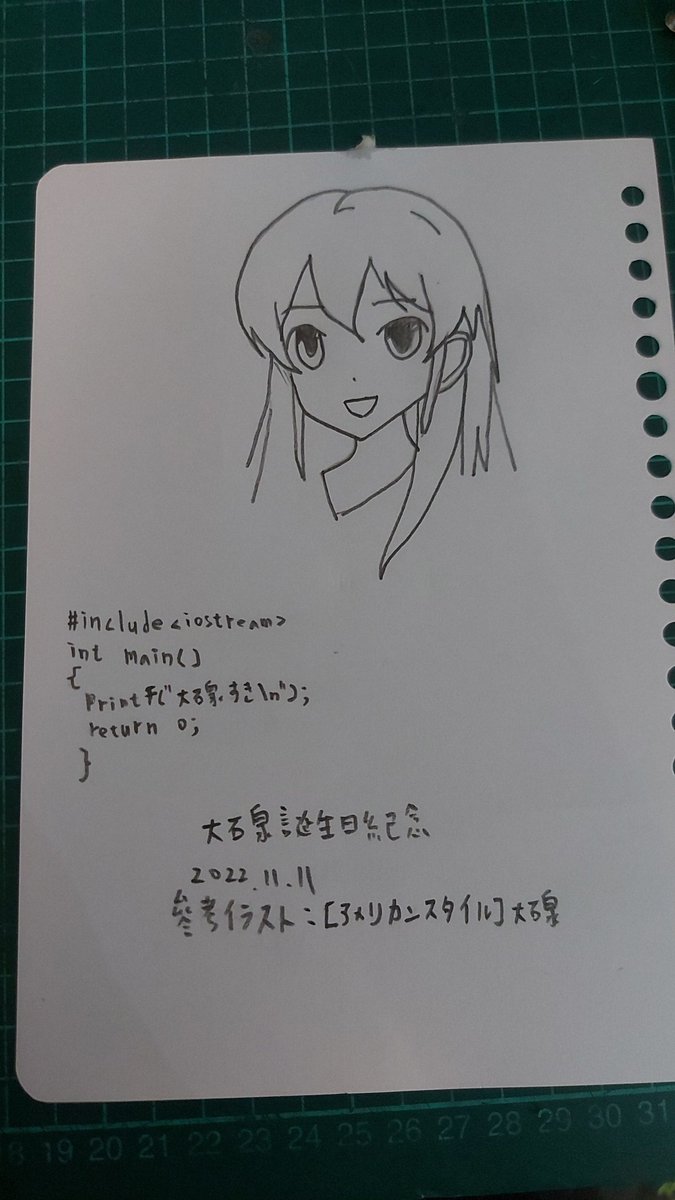 #include<iostream>
int main()
{
printf("大石泉すき\n");
return 0;
}
大石泉誕生日紀念
2022.11.11
參考イラスト:[アメリカンスタイル]大石泉
18 19 20 21 22 23 24 25 26 27 28 29 30 31